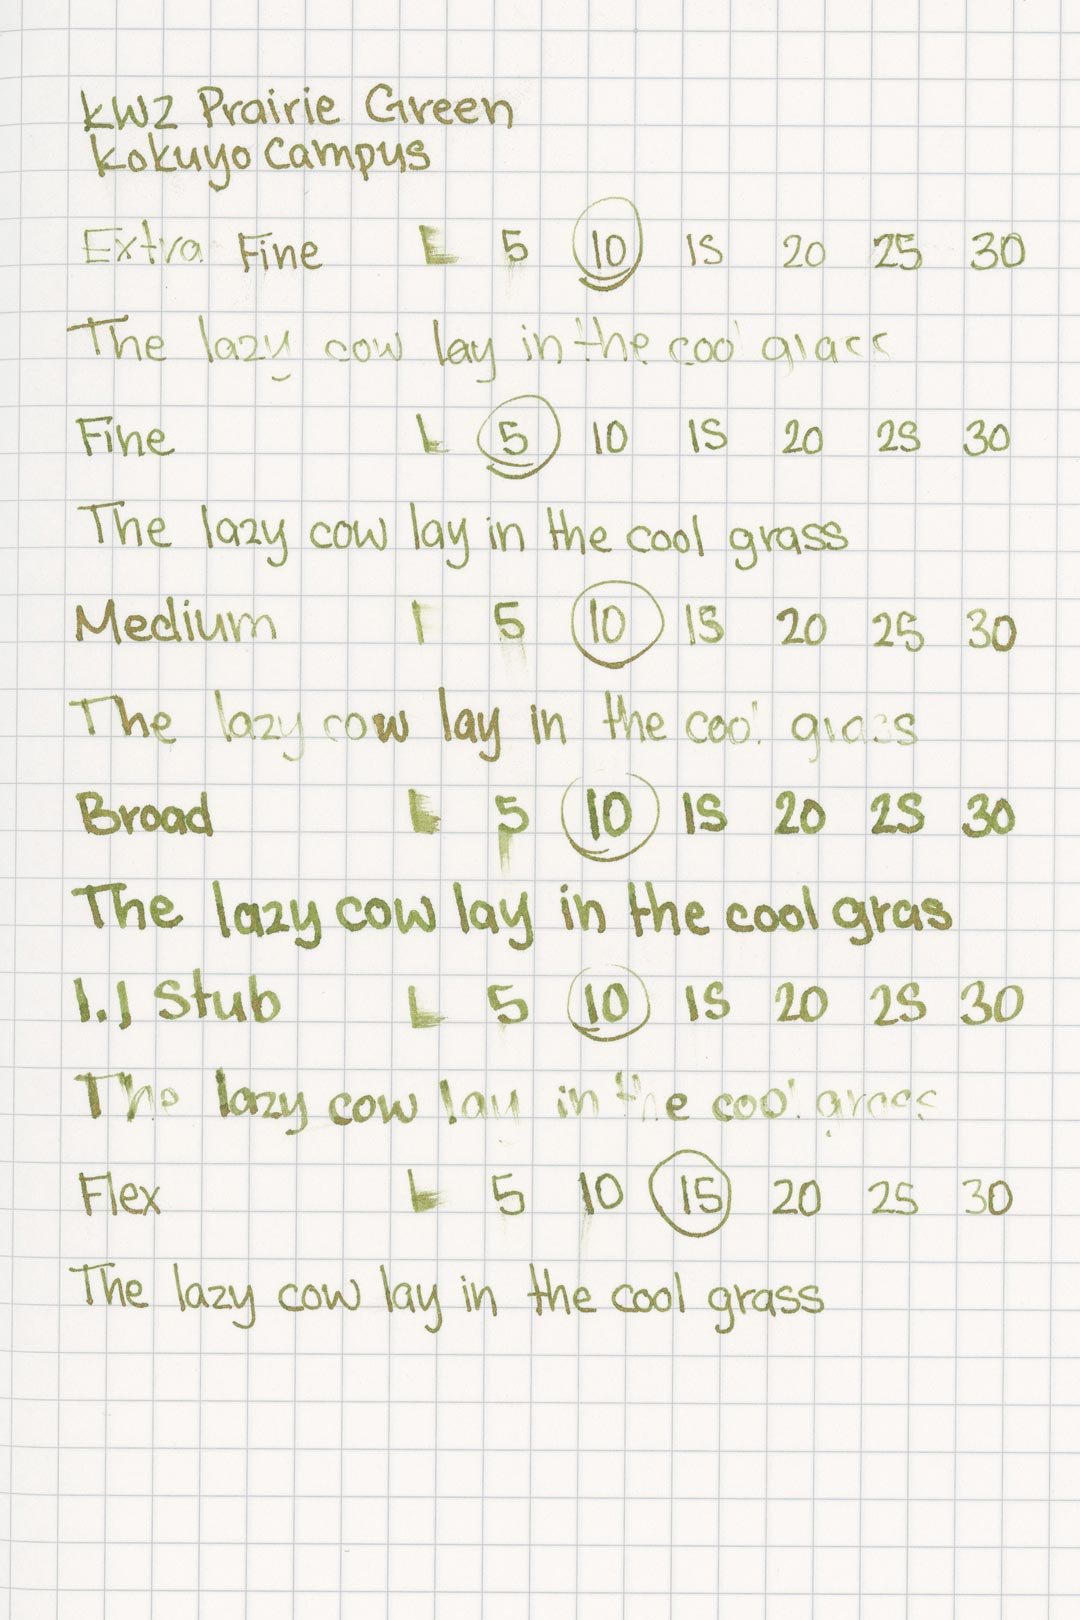 KWZ Prairie Green
Kokuyo Campus
Extra Fine L 5 10 15 20 25 30
The lazy cow lay in the cool grass
Fine L 5 10 15 20 25 30
The lazy cow lay in the cool grass
Medium 1 5 10 15 20 25 30
The lazy cow lay in the cool grass
Broad L 5 10 15 20 25 30
The lazy cow lay in the cool gras
1.1 Stub L 5 10 15 20 25 30
The lazy cow lay in the cool grass
Flex L 5 10 15 20 25 30
The lazy cow lay in the cool grass